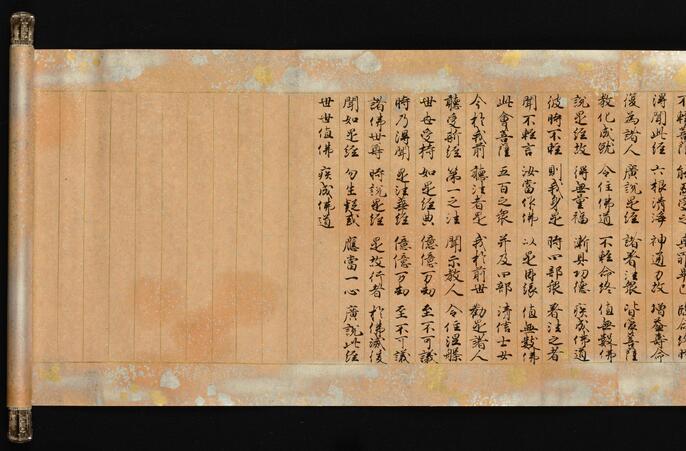 得聞此經 六根清淨 神通力故 增益壽命
復為諸人 廣說是經 諸著法衆 皆蒙菩薩
教化成就 令住佛道 不輕命終 值無數佛
說是經故 得無量福 漸具功德 疾成佛道
彼時不輕 則我身是 時四部衆 著法之者
聞不輕言 汝當作佛 以是因緣 值無數佛
此會菩薩 五百之衆 并及四部 清信士女
今於我前 聽法者是 我於前世 勸是諸人
聽受斯經 第一之法 開示教人 令住涅槃
世世受持 如是經典 億億万劫 至不可議
時乃得聞 是法華經 億億万劫 至不可議
諸佛世尊 時說是經 是故行者 於佛滅後
聞如是經 勿生疑惑 應當一心 廣說此經
世世值佛 疾成佛道